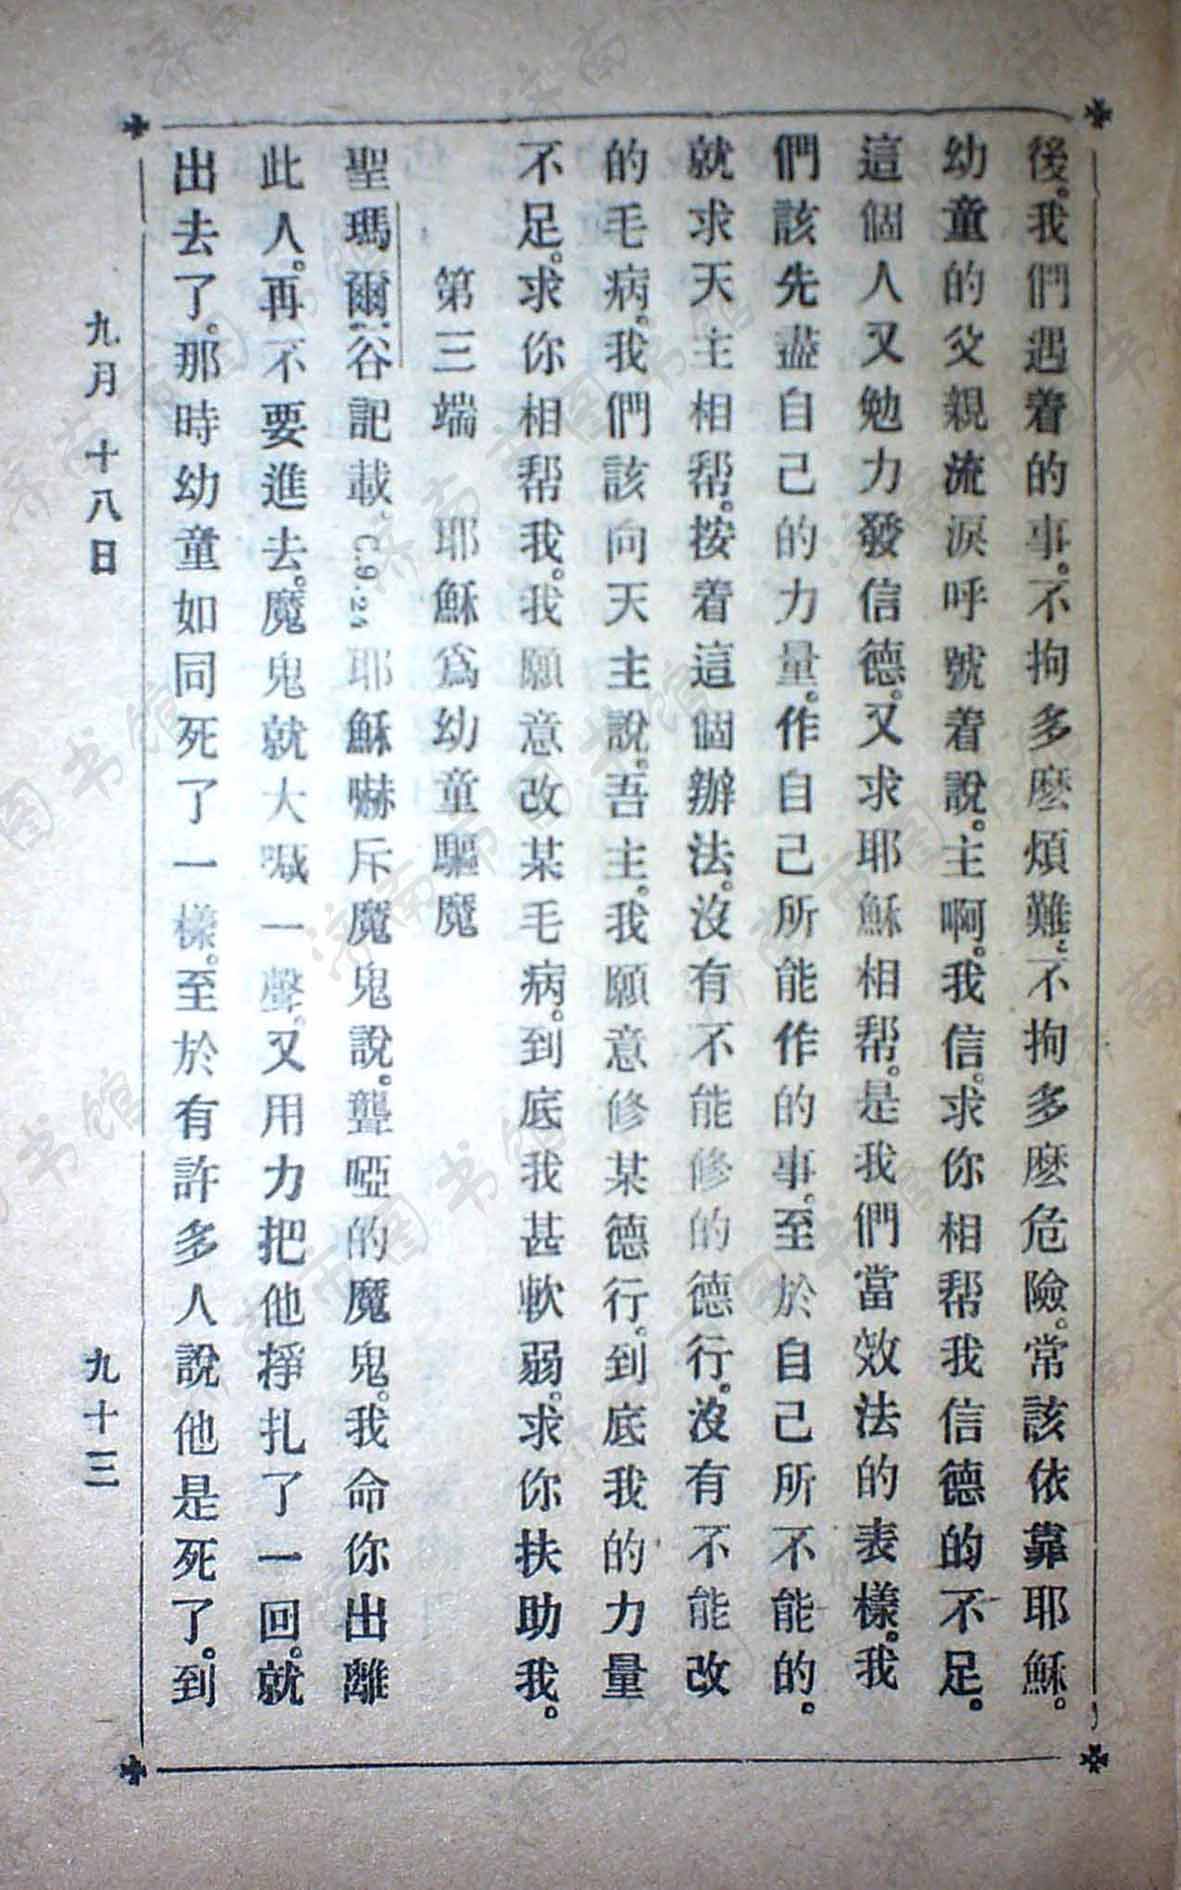 後。我們遇着的事。不拘多麽煩難。不拘多麽危險。常該依靠耶穌。
幼童的父親流淚呼號着說。主啊。我信。求你相帮我信德的不足。
這個人又勉力發信德。又求耶穌相帮。是我們當效法的表樣。我
們該先盡自己的力量。作自己所能作的事。至於自己所不能的。
就求天主相帮。按着這個辦法。沒有不能修的德行。沒有不能改
的毛病。我們該向天主說。吾主。我願意修某德行。到底我的力量
不足。求你相帮我。我願意改某毛病。到底我甚軟弱。求你扶助我。
第三端 耶穌爲幼童驅魔
聖瑪爾谷記載 C.9.24 耶穌嚇斥魔鬼說。聾啞的魔鬼。我命你出離
此人。再不要進去。魔鬼就大喊一聲。又用力把他掙扎了一回。就
出去了。那時幼童如同死了一樣。至於有許多人說他是死了。到
九月十八日 九十三